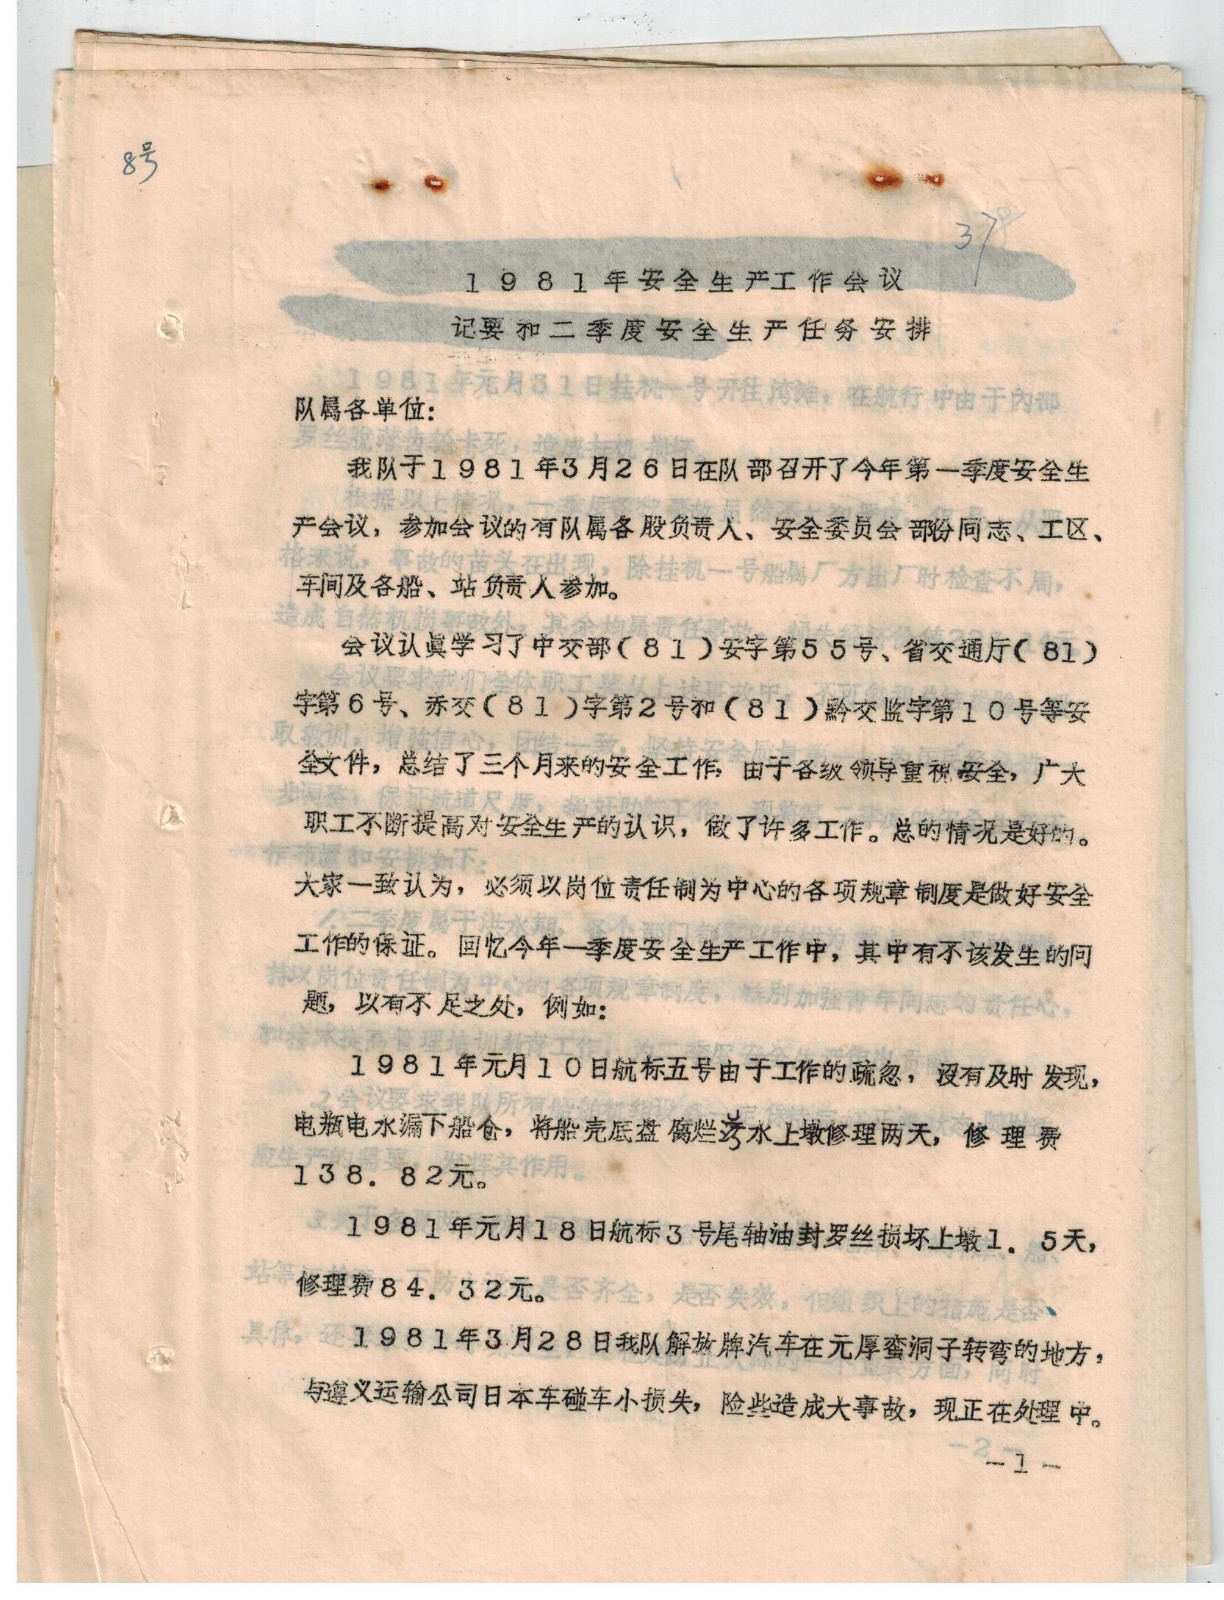 8号
37
1981年安全生产工作会议
记要和二季度安全生产任务安排
队属各单位：
我队于1981年3月26日在队部召开了今年第一季度安全生
产会议，参加会议的有队属各股负责人、安全委员会部份同志、工区、
车间及各船、站负责人参加。
会议认眞学习了中交部（81）安字第55号、省交通厅（81）
字第6号、赤交（81）字第2号和（81）黔交监字第10号等安
全文件，总结了三个月来的安全工作，由于各级领导重视安全，广大
职工不断提高对安全生产的认识，做了许多工作。总的情况是好的。
大家一致认为，必须以岗位责任制为中心的各项规章制度是做好安全
工作的保证。回忆今年一季度安全生产工作中，其中有不该发生的问
题，以有不足之处，例如：
1981年元月10日航标五号由于工作的疏忽，没有及时发现，
电瓶电水漏下船仓，将船壳底盘腐烂 水上墩修理两天，修理费
138.82元。
1981年元月18日航标3号尾轴油封罗丝损坏上墩1.5天，
修理费84.32元。
1981年3月28日我队解放牌汽车在元厚蛮洞子转弯的地方，
与遵义运输公司日本车碰车小损失，险些造成大事故，现正在处理中。
－1－